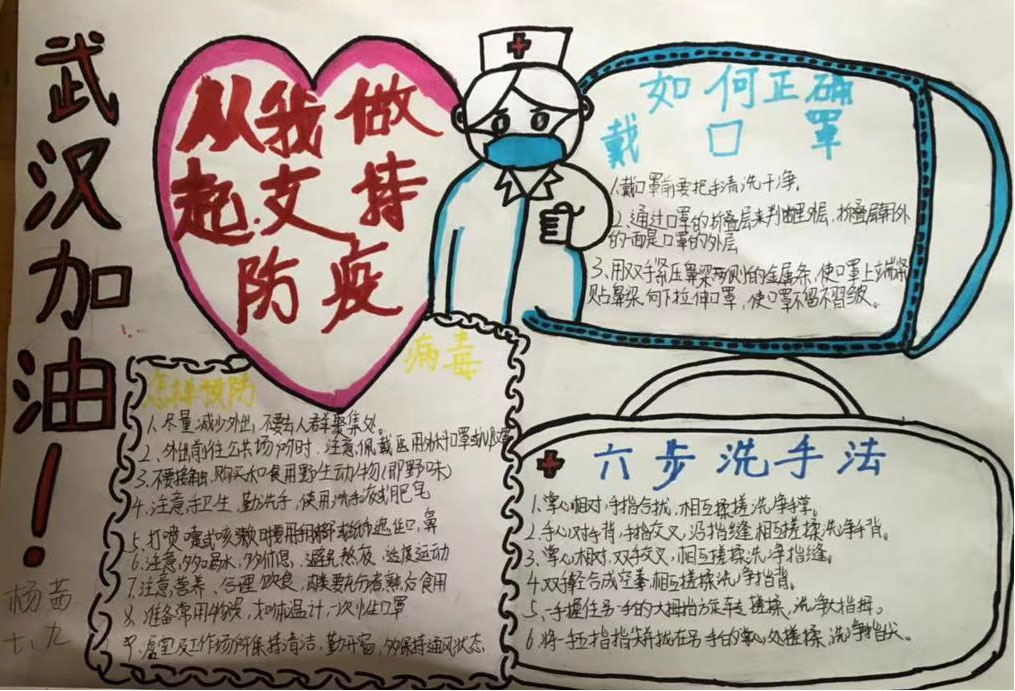 武汉加油!
从我做
起.支持
防疫
如何正确
戴口罩
1.戴口罩前要把手清洗干净.
2.通过口罩的折叠层来判断里外层,折叠层朝外
的一面是口罩的外层
3.用双手紧压鼻梁两侧的金属条,使口罩上端紧
贴鼻梁向下拉伸口罩,使口罩不留褶皱。
怎样预防病毒
1.尽量减少外出,不要去人群聚集处。
2.外出前往公共场所时.注意佩戴医用外科口罩或N95口罩
3.不要接触.购买和食用野生动物(即野味)
4.注意手卫生.勤洗手,使用洗手液或肥皂
5.打喷嚏或咳嗽时要用手绢或纸巾遮住口,鼻
6.注意,多喝水,多休息,避免熬夜.适度运动
7.注意营养、合理饮食,肉类要充分煮熟后食用
8.准备常用物资,如体温计,一次性口罩
9.居室及工作场所保持清洁,勤开窗,多保持通风状态.
六步洗手法
1.掌心相对,手指合拢,相互揉搓洗净手掌。
2.手心对手背,手指交叉,沿指缝相互搓揉洗净手背。
3.掌心相对,双手交叉,相互搓揉洗净指缝。
4.双手轻合成空拳,相互搓揉洗净指背。
5.一手握住另一手的大拇指旋转搓揉,洗净大指拇。
6.将一手五指指尖并拢在另一手的掌心处搓揉,洗净指尖。
杨茜
七、九